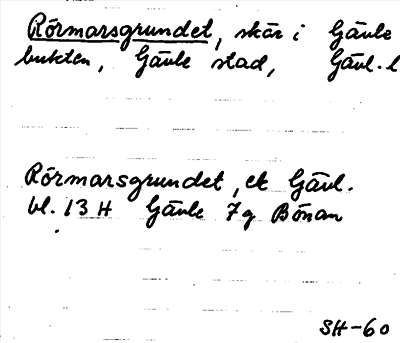 Rörmarsgrundet, skär i Gävle
bukten, Gävle stad, Gävl. l
Rörmarsgrundet, ek Gävl.
bl. 13 H Gävle 7g Bönan
SH-60